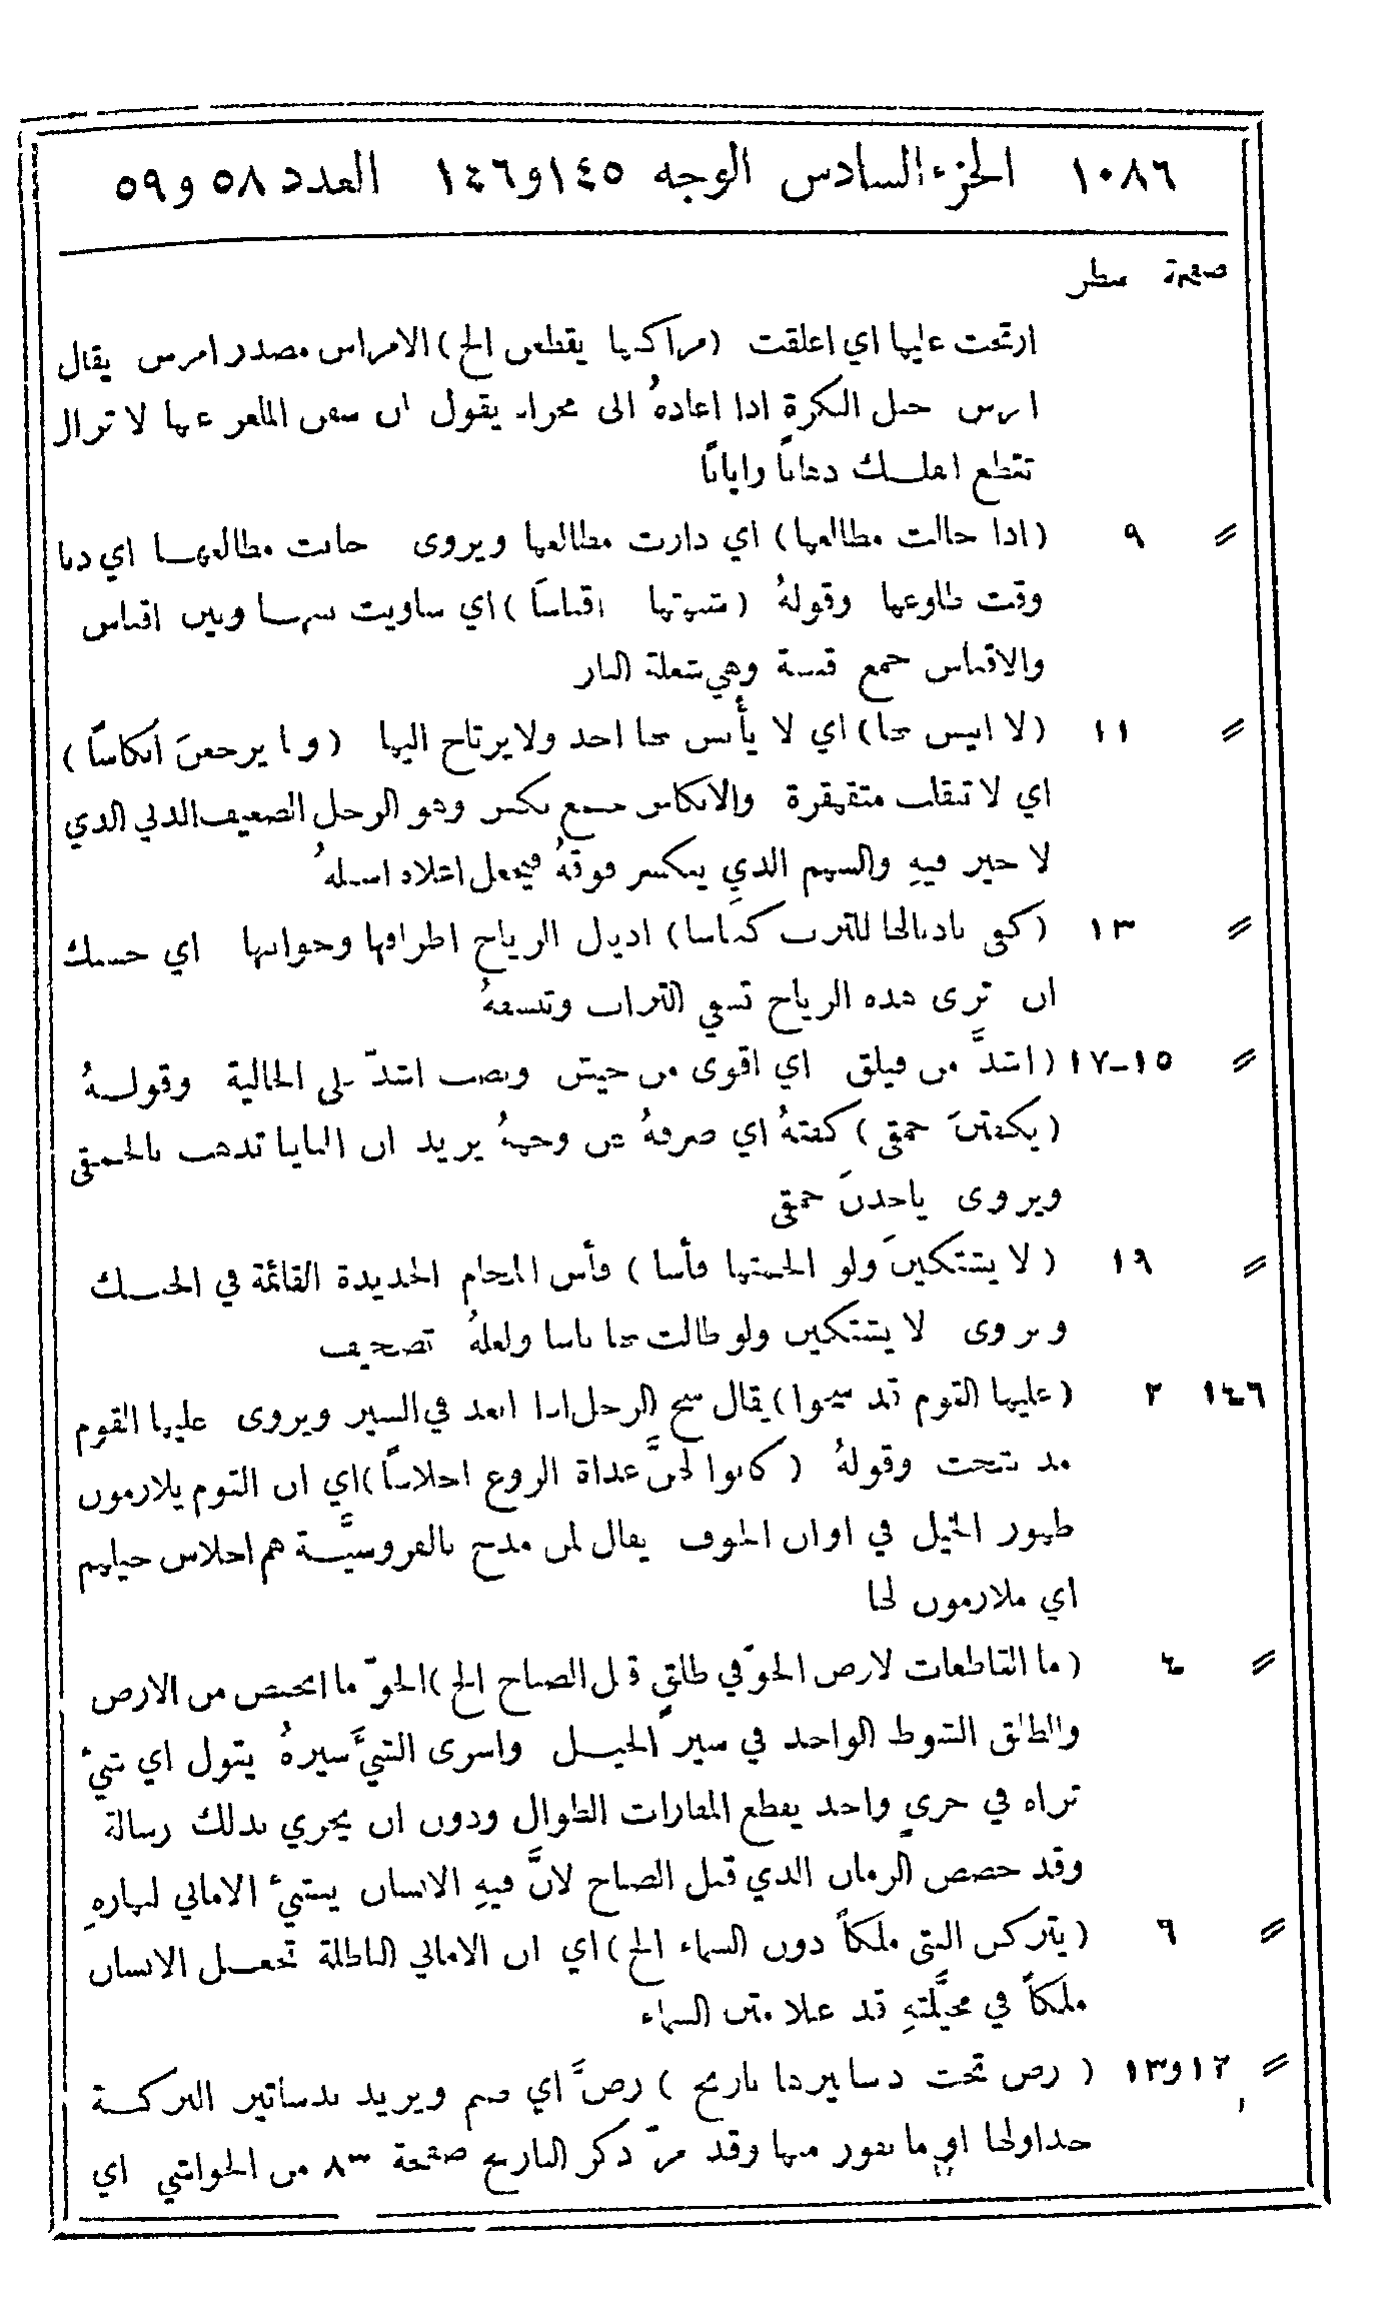 ١٠٨٦ الجزء السادس الوجه ١٤٥ و١٤٦ العدد ٥٨ و ٥٩
صفحة سطر
ارتجت عليها اي اغلقت (مراكبها يقطعن الخ) الامراس مصدر امرس يقال
امرس حبل البكرةِ اذا اعادهُ الى مجراه يقول ان سفن عنها لا تزال
تقطع اهلـك ذهابًا وايابًا
〃 ٩ (اذا حالت مطالعها) اي دارت مطالعها ويروى حانت مطالعهـا اي دنا
وقت طلوعها وقولهُ (شبهتها اقباسَا) اي ساويت بينهـا وبين اقباس
والاقباس جمع قبسة وهي شعلة النار
〃 ١١ (لا انيس بها) اي لا يأنس بها احد ولا يرتاح اليها (وما يرجعنَ انكاسًا)
اي لا تنقلب متقهقرة والانكاس جمع نكس وهو الرجل الضعيف الدني الذي
لا خير فيهِ والسهم الذي ينكسر فوقهُ فيجعل اعلاه اسفلهُ
〃 ١٣ (كفى باذيالها للترب كناسا) اذيال الرياح اطرافها وجوانبها اي حسبك
ان ترى هذه الرياح تسفي التراب وتنسفهُ
〃 ١٥-١٧ (اشدَّ من فيلق اي اقوى من جيش ونصب اشدّ على الحالية وقولـهُ
(يكفتنَ حمقى) كفتهُ اي صرفهُ عن وجههُ يريد ان المنايا تذهب بالحمقى
ويروى ياخذنَ حمقى
〃 ١٩ (لا يشتكينَ ولو الجمتها فأسا) فأس اللجام الحديدة القائمة في الحنـك
ويروى لا يشتكين ولو طالت بها باسا ولعلهُ تصحيف
١٤٦ ٢ (عليها القوم قد سبحوا) يقال سبح الرجل اذا ابعد في السير ويروى عليها القوم
قد شحت وقولهُ (كانوا لهنَّ غداة الروع احلاسًا) اي ان القوم يلازمون
ظهور الخيل في اوان الخوف يقال لمن مدح بالفروسيَّـة هم احلاس خيلهم
اي ملازمون لها
〃 ٤ (ما القاطعات لارض الجوّ في طلقٍ قبل الصباح الخ) الجوّ ما انخفض من الارض
والطلق الشوط الواحد في سير الخيـل واسرى الشيَّ سيرهُ يقول اي شيْ
تراه في جري واحد يقطع المفازات الطوال ودون ان يجري بذلك رسالة
وقد خصص الزمان الذي قبل الصباح لانَّ فيهِ الانسان ينشيْ الاماني لنهارهِ
〃 ٦ (يتركن الفتى ملكاً دون السماء الخ) اي ان الاماني الباطلة تجعـل الانسان
ملكاً في مخيَّلتهِ قد علا متن السماء
〃 ١٢ و١٣ ( رص تحت دسابيرها باريح ) رصَّ اي ضم ويريد بدساتير البركـة
جداولها او ما يفور منها وقد مرّ ذكر الباريح صفحة ٨٣ من الحواشي اي